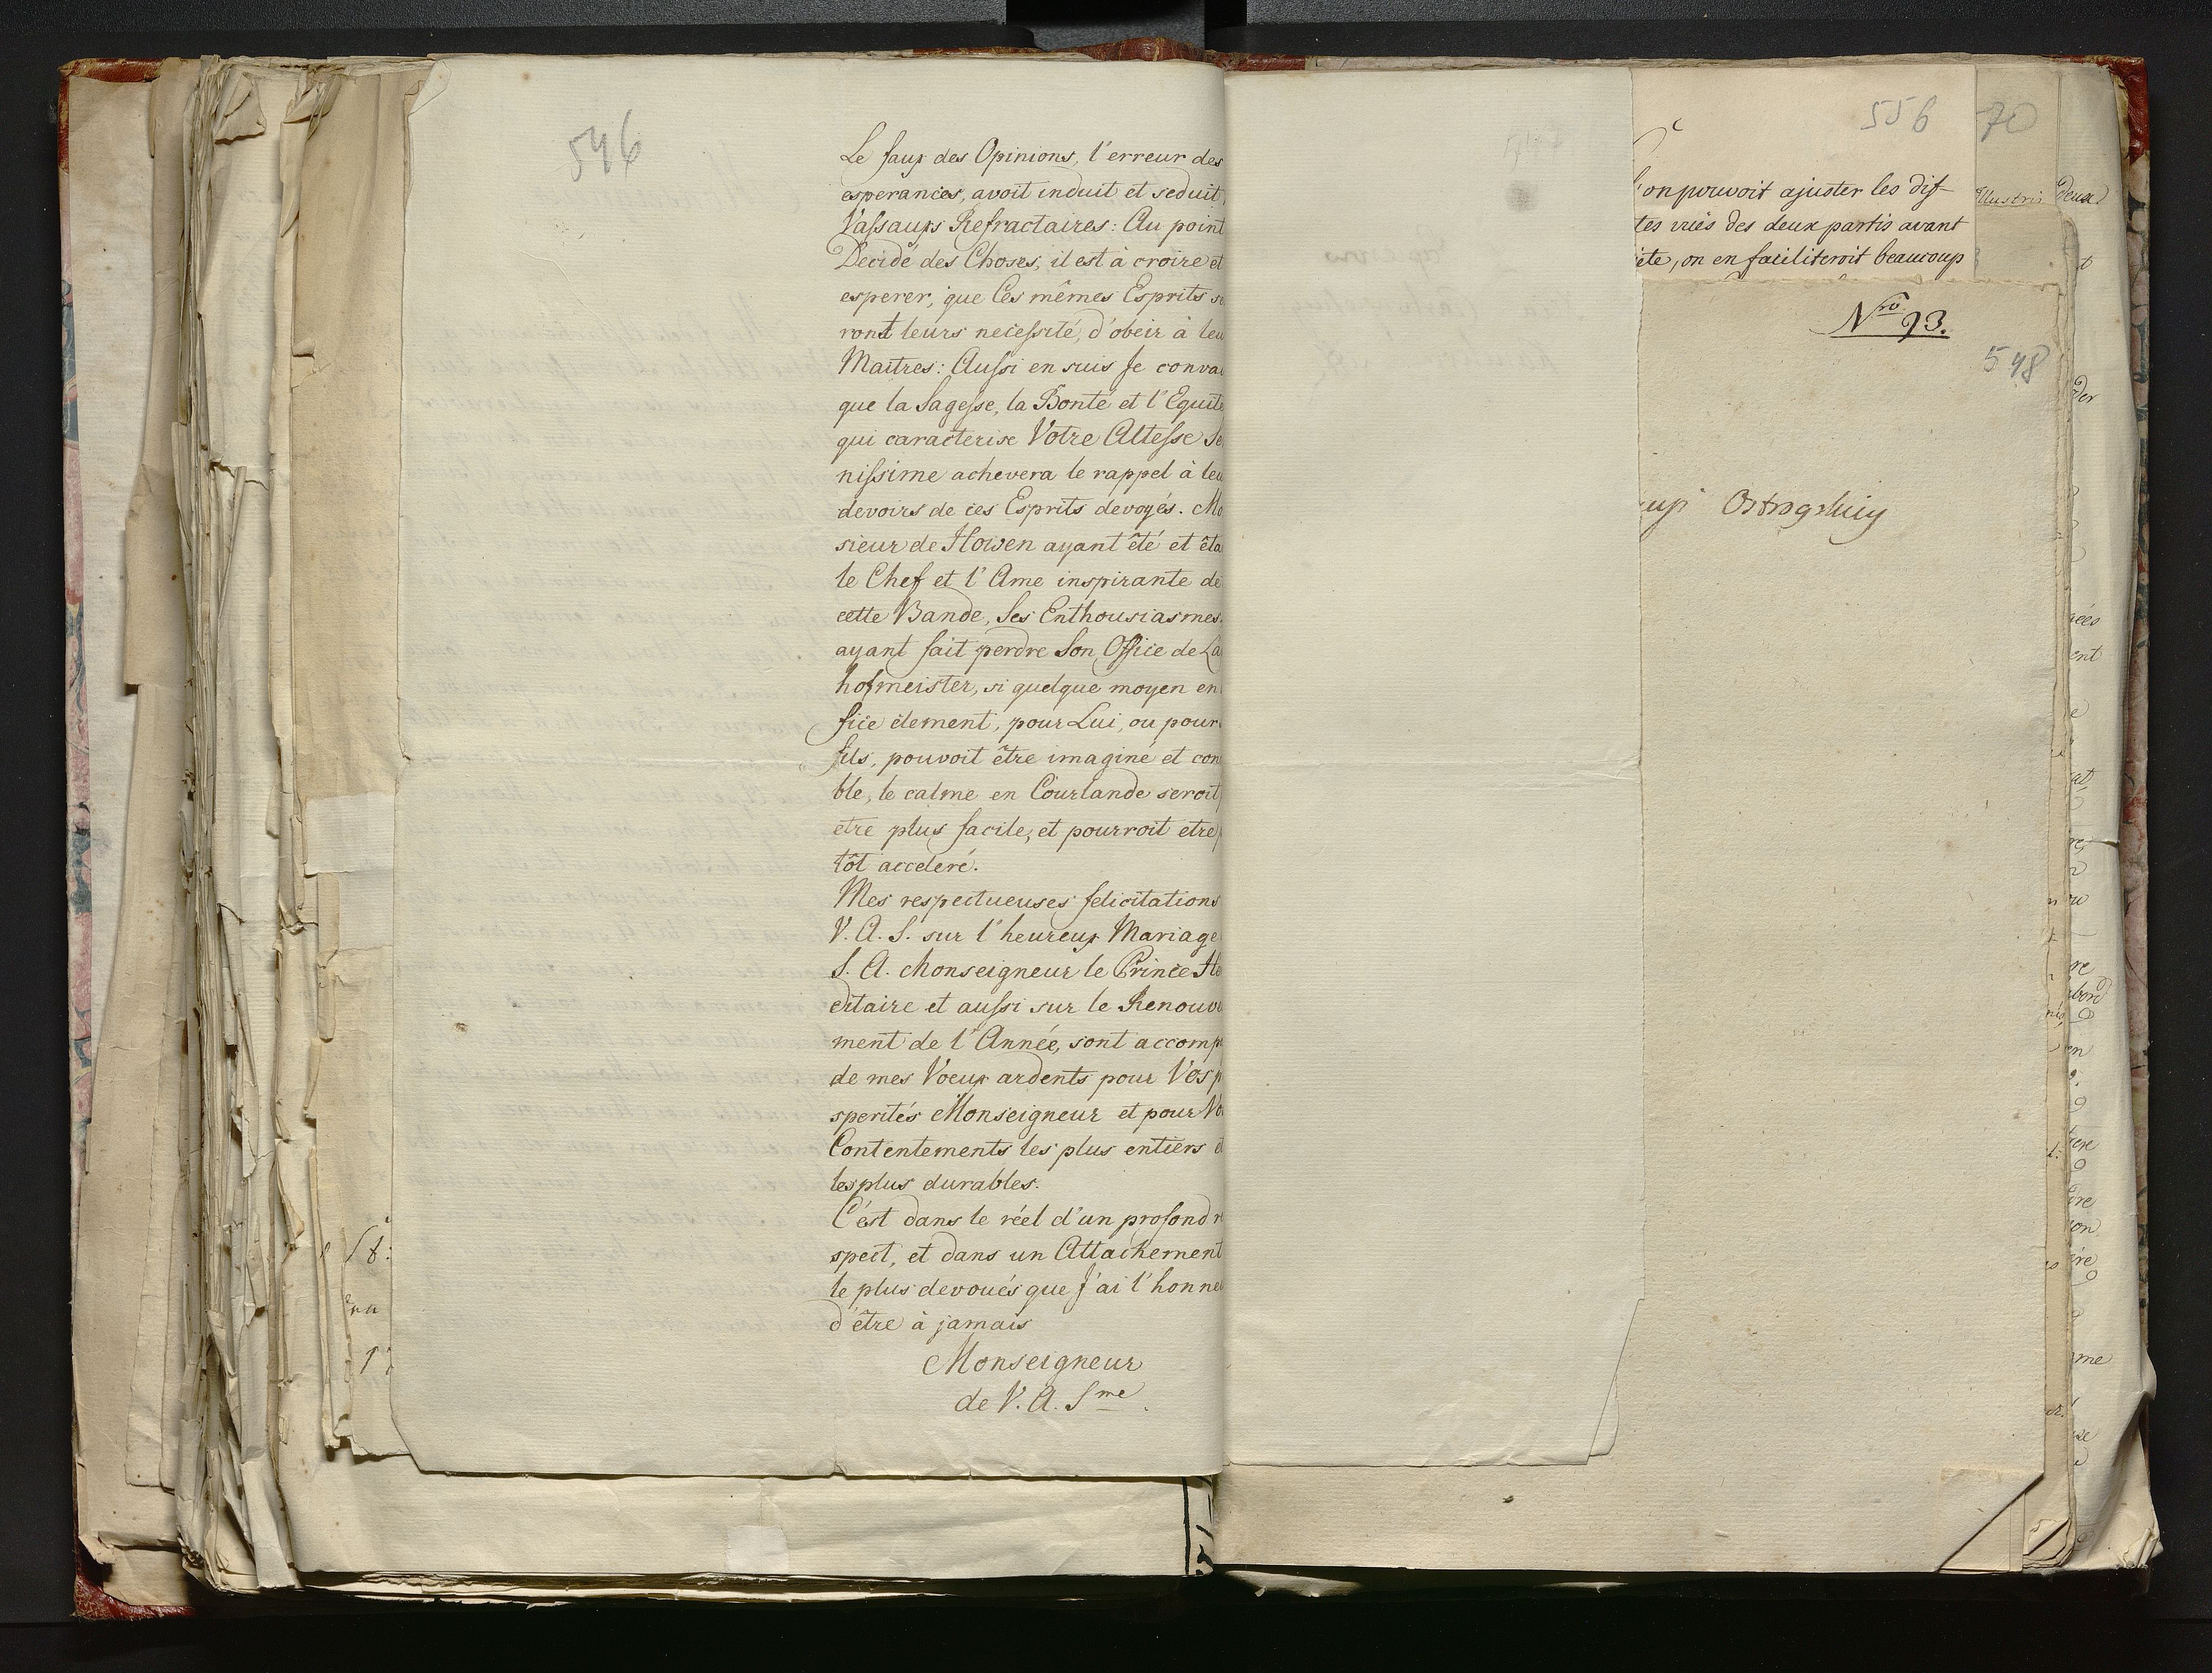 546
Le faux des Opinions, l'erreur des
esperances, avoit induit et seduit
Vassaux Refractaires: Au point
Decidé des Choses, il est à croire et
esperer, que Ces mêmes Esprits se
ront leurs necessité, d'obeir à leu
Maitres: Aussi en suis Je conva
que la Sagesse, la Bonté et l'Equité
qui caracterise Votre Altesse Se
nissime achevera le rappel à leu
devoirs de ces Esprits devoyés. Mo
sieur de Howen ayant êté et êta
le Chef et l'Ame inspirante de
cette Bande, Ses Enthousiasmes
ayant fait perdre Son Office de La
hofmeister, si quelque moyen en
fice clement, pour Lui, ou pour
fils, pouvoit être imaginé et con
ble, le calme en Courlande seroit
etre plus facile, et pourroit etre
tôt acceleré.
Mes respectueuses felicitations
V. A. S. sur l'heureux Mariage
S. A. Monseigneur le Prince He
editaire et aussi sur le Renouve
ment de l'Année, sont accomp
de mes Voeux ardents pour Vos p
sperités Monseigneur et pour Vo
Contentements les plus entiers et
les plus durables.
C'est dans le réel d'un profond re
spect, et dans un Attachement
le plus devoués que J'ai l'honne
d'être à jamais
Monseigneur
de V. A. Sme.
556
l'on pouvoit ajuster les dif-
tes vuës des deux partis avant
iete, on en faciliteroit beaucoup
70
Illustris
deux
Nro 93.
548